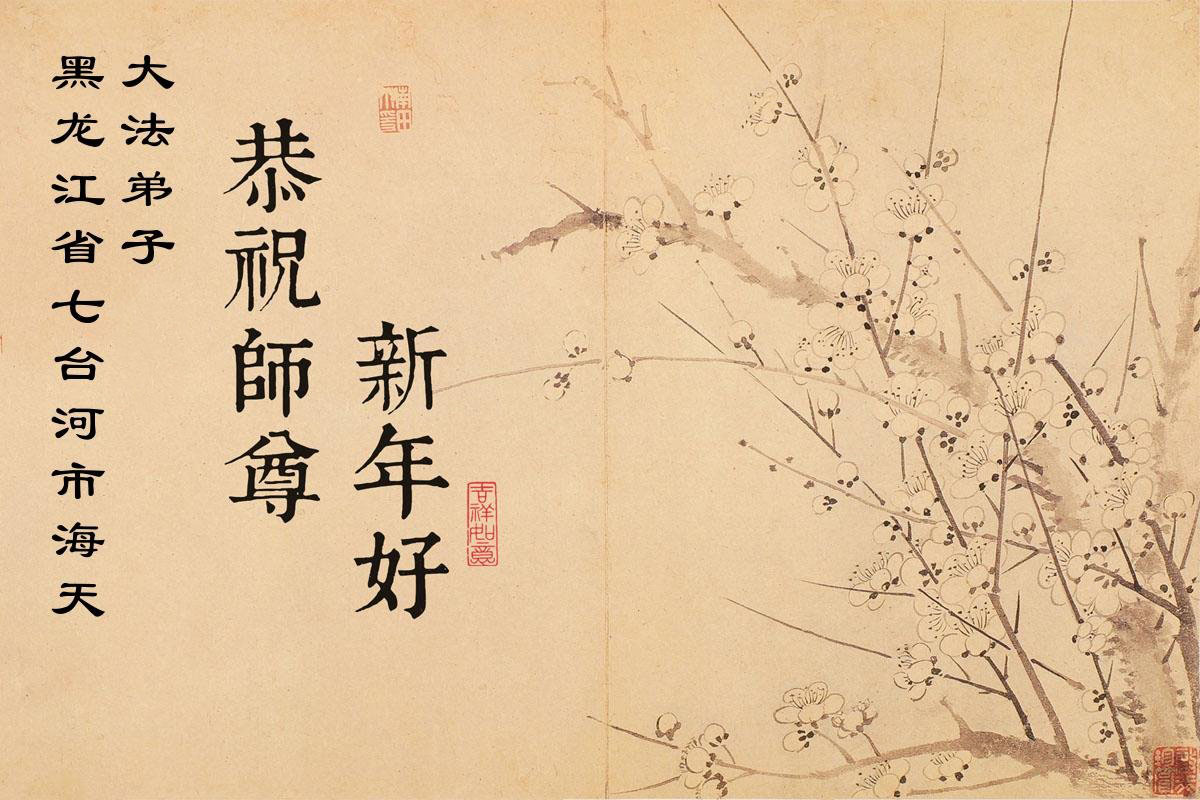 黑龙江省七台河市海天
大法弟子
恭祝師尊
新年好
吉祥如意